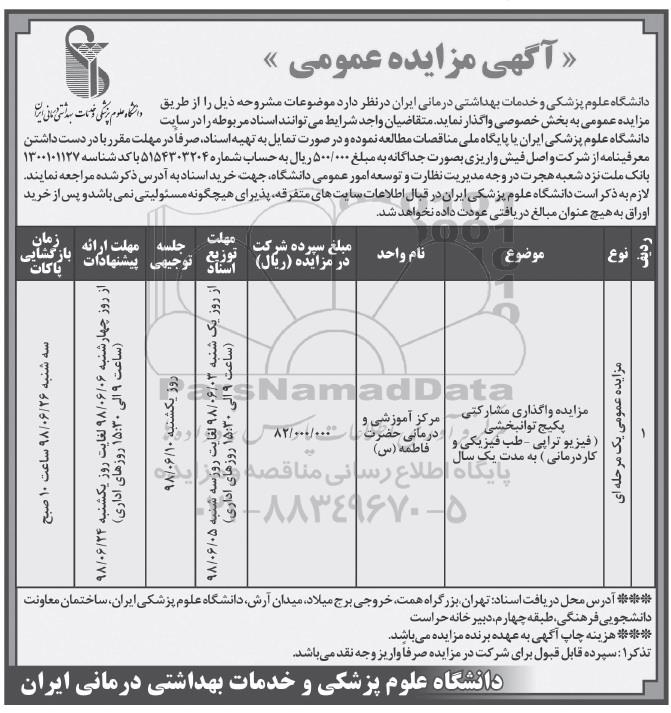 « آگهی مزایده عمومی »
دانشگاه علوم پزشکی و خدمات بهداشتی درمانی ایران
دانشگاه علوم پزشکی و خدمات بهداشتی درمانی ایران درنظر دارد موضوعات مشروحه ذیل را از طریق
مزایده عمومی به بخش خصوصی واگذار نماید. متقاضیان واجد شرایط می‌توانند اسناد مربوطه را در سایت
دانشگاه علوم پزشکی ایران یا پایگاه ملی مناقصات مطالعه نموده و در صورت تمایل به تهیه اسناد، صرفاً در مهلت مقرر با در دست داشتن
معرفینامه از شرکت و اصل فیش واریزی بصورت جداگانه به مبلغ ۵۰۰/۰۰۰ ریال به حساب شماره ۵۱۵۴۳۰۳۲۰۴ با کد شناسه ۱۳۰۰۱۰۱۱۲۷
بانک ملت نزد شعبه هجرت در وجه مدیریت نظارت و توسعه امور عمومی دانشگاه، جهت خرید اسناد به آدرس ذکر شده مراجعه نمایند.
لازم به ذکر است دانشگاه علوم پزشکی ایران در قبال اطلاعات سایت‌های متفرقه، پذیرای هیچگونه مسئولیتی نمی‌باشد و پس از خرید
اوراق به هیچ عنوان مبالغ دریافتی عودت داده نخواهد شد.
ردیف
نوع
موضوع
نام واحد
مبلغ سپرده شرکت
در مزایده (ریال)
مهلت
توزیع
اسناد
جلسه
توجیهی
مهلت ارائه
پیشنهادات
زمان
بازگشایی
پاکات
۱
مزایده عمومی یک مرحله ای
مزایده واگذاری مشارکتی
پکیج توانبخشی
(فیزیو تراپی - طب فیزیکی و
کاردرمانی) به مدت یک سال
مرکز آموزشی و
درمانی حضرت
فاطمه (س)
۸۲/۰۰۰/۰۰۰
از روز یک شنبه ۹۸/۰۶/۰۳ لغایت روز سه شنبه ۹۸/۰۶/۰۵
(ساعت ۹ الی ۱۵:۳۰ روزهای اداری)
روز یکشنبه ۹۸/۰۶/۱۰
از روز چهارشنبه ۹۸/۰۶/۰۶ لغایت روز یکشنبه ۹۸/۰۶/۲۴
(ساعت ۹ الی ۱۵:۳۰ روزهای اداری)
سه شنبه ۹۸/۰۶/۲۶ ساعت ۱۰ صبح
ParsNamadData
پایگاه اطلاع رسانی مناقصه و مزایده
۰۲۱-۸۸۳۴۹۶۷۰-۵
*** آدرس محل دریافت اسناد: تهران، بزرگراه همت، خروجی برج میلاد، میدان آرش، دانشگاه علوم پزشکی ایران، ساختمان معاونت
دانشجویی فرهنگی، طبقه چهارم، دبیرخانه حراست
*** هزینه چاپ آگهی به عهده برنده مزایده می‌باشد.
تذکر۱: سپرده قابل قبول برای شرکت در مزایده صرفاً واریز وجه نقد می‌باشد.
دانشگاه علوم پزشکی و خدمات بهداشتی درمانی ایران